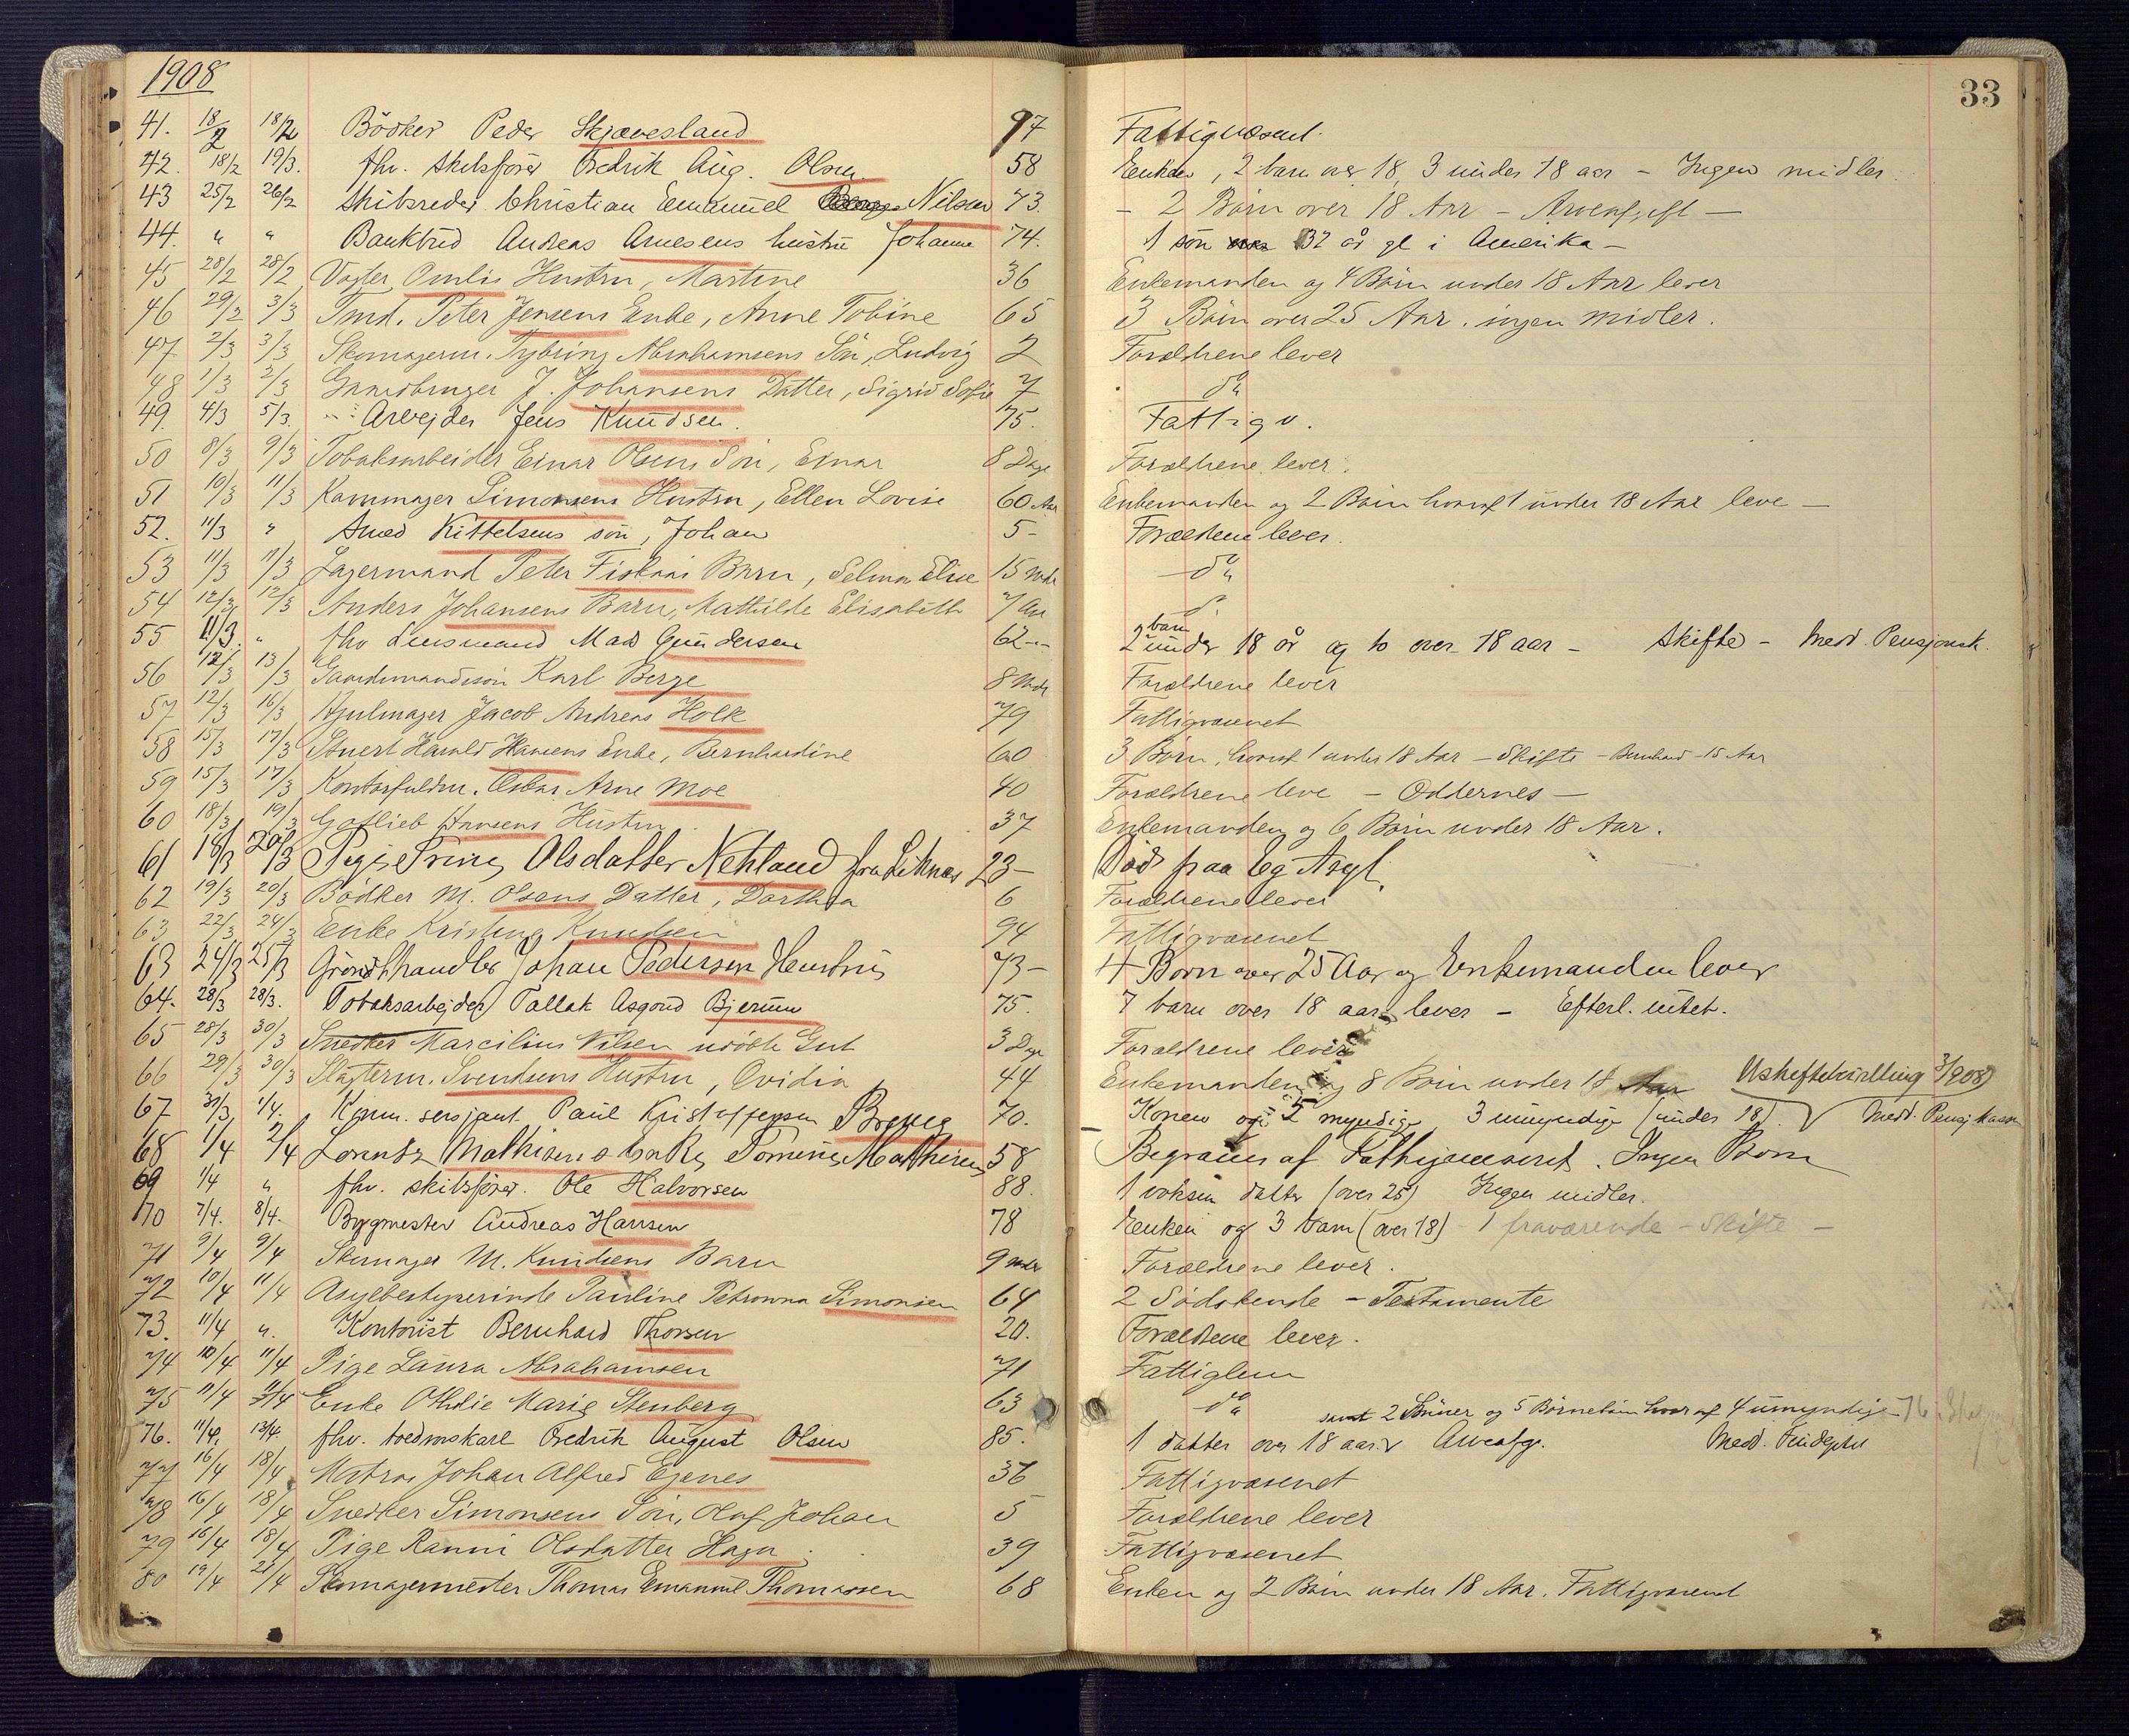 1908
33
41. 18/2 18/2 Bödker Peder Skjævesland 97 Fattigvæsent.
42. 18/2 19/3. fhv. skibsfører Fredrik Aug. Olsen. 58 Enken, 2 barn over 18, 3 under 18 aar - Ingen midler.
43 25/2 26/2 Skibsreder Christian Emanuel Nilsen 73. - 2 Börn over 18 Aar - Arveafgift -
44. " " Bankbud Andreas Arnesens hustru Johanne 74. 1 sön 32 år gl i Amerika -
45 28/2 28/2 Vogter Omlis Hustru, Martine 36 Enkemanden og 4 Börn under 18 Aar lever
46 29/2 3/3 Tmd. Peter Jensens Enke, Anne Tobine 65 3 Börn over 25 Aar. ingen midler.
47 2/3 3/3 Skomagerm. Tybring Abrahamsens Sön, Ludvig 2 Forældrene lever
48 1/3 2/3 Gaardbruger J. Johansens Datter, Sigrid Sofie 7 do
49. 4/3 5/3. Arbejder Jens Knudsen. 75. Fattigv.
50 8/3 9/3 Tobaksarbeider Einar Olsens Sön, Einar 8 Dage Forældrene lever.
51 10/3 11/3 Kammager Simonsens Hustru, Ellen Lovise 60 Aar Enkemanden og 2 Börn hvoraf 1 under 18 Aar leve -
52. 11/3 " Smed Kittelsens sön, Johan 5- Forældrene lever.
53 11/3 11/3 Lagermand Peter Fiskaas Barn, Selma Elise 15 Mdr do
54 12/3 12/3 Anders Johansens Barn, Mathilde Elisabeth 7 Aar do
55 11/3. " fhv Lensmand Mads Gundersen 62 2 barn under 18 år og to over 18 aar - Skifte - Medd. Pensjonsk.
56 12/3 13/3 Gaardmandssön Karl Berge 8 Mdr Forældrene lever
57 12/3 16/3 Hjulmager Jacob Andreas Holk 79 Fattigvæsenet
58 15/3 17/3 Stuert Harald Hansens Enke, Bernhardine 60 3 Börn, hvoraf 1 under 18 Aar - Skifte - Bernhard - 15 Aar
59 15/3 17/3 Kontorfuldm. Oskar Arne Moe 40 Forældrene leve - Oddernes -
60 18/3 19/3 Gotlieb Hansens Hustru. 37 Enkemanden og 6 Börn under 18 Aar.
61 18/3 20/3 Pige Olsdatter Nehland fra 23- Död paa Eg Asyl.
62 19/3 20/3 Bödker M. Olsens Datter, Dorthea 6 Forældrene lever
63 22/3 24/3 Enke Kristine Knudsen 94 Fattigvæsenet
63 24/3 25/3 Grönthandler Johan Pedersen Hustru 73- 4 Born over 25 Aar og Enkemanden lever
64. 28/3 28/3. Tobaksarbejder Tallak Asgoud Bjerum 75. 7 barn over 18 aar lever - Efterl. intet.
65 28/3 30/3 Snedker Marcilius Nilsen udöbt Gut 3 Dage Forældrene lever
66 29/3 30/3 Slagterm. Svendsens Hustru, Ovidia 44 Enkemanden og 8 Börn under 18 Aar Uskiftebevilling 3/1908
67 30/3 1/4. Komm. sersjant Paul Kristoffersen 70. Konen og 5 myndige, 3 umyndige (under 18). Medd. Pensj.kassen
68 1/4 2/4 Lorentz Mathisens Enke, Mathisen 58 Begraves af Fattigvæsenet. Ingen Born
69 1/4 " fhv. skibsfører. Ole Halvorsen 88. 1 voksen datter (over 25) Ingen midler.
70 7/4. 8/4. Bygmester Andreas Hansen 78 Enken og 3 barn (over 18) - 1 fraværende - Skifte -
71 9/4 9/4 Skomager M. Knudsens Barn 9 Mdr Forældrene lever.
72 10/4 11/4 Asylbestyrerinde Pauline Petronna Simonsen 64 2 Södskende - Testamente
73. 11/4 ". Kontorist Bernhard Thorsen 20. Forældrene lever.
74 10/4 11/4 Pige Laura Abrahamsen 71 Fattiglem
75 11/4 11/4 Enke Othilie Marie Stenberg 63 do
samt 2 Sönner og 5 Börnebörn hvoraf 4 umyndige
76. 11/4. 13/4. fhv. Fredrik August Olsen 85. 1 datter over 18 aar. Arveafg. Medd.
77 16/4 18/4 Matros Johan Alfred Egenes 36 Fattigvæsenet
78 16/4 18/4 Snedker Simonsens Sön, Olaf Johan 5 Forældrene lever
79 16/4 18/4 Pige Ranni Olsdatter Hagn 39 Fattigvæsenet
80 19/4 21/4 Skomagermester Thomas Emanuel Thomassen 68 Enken og 2 Börn under 18 Aar. Fattigvæsenet